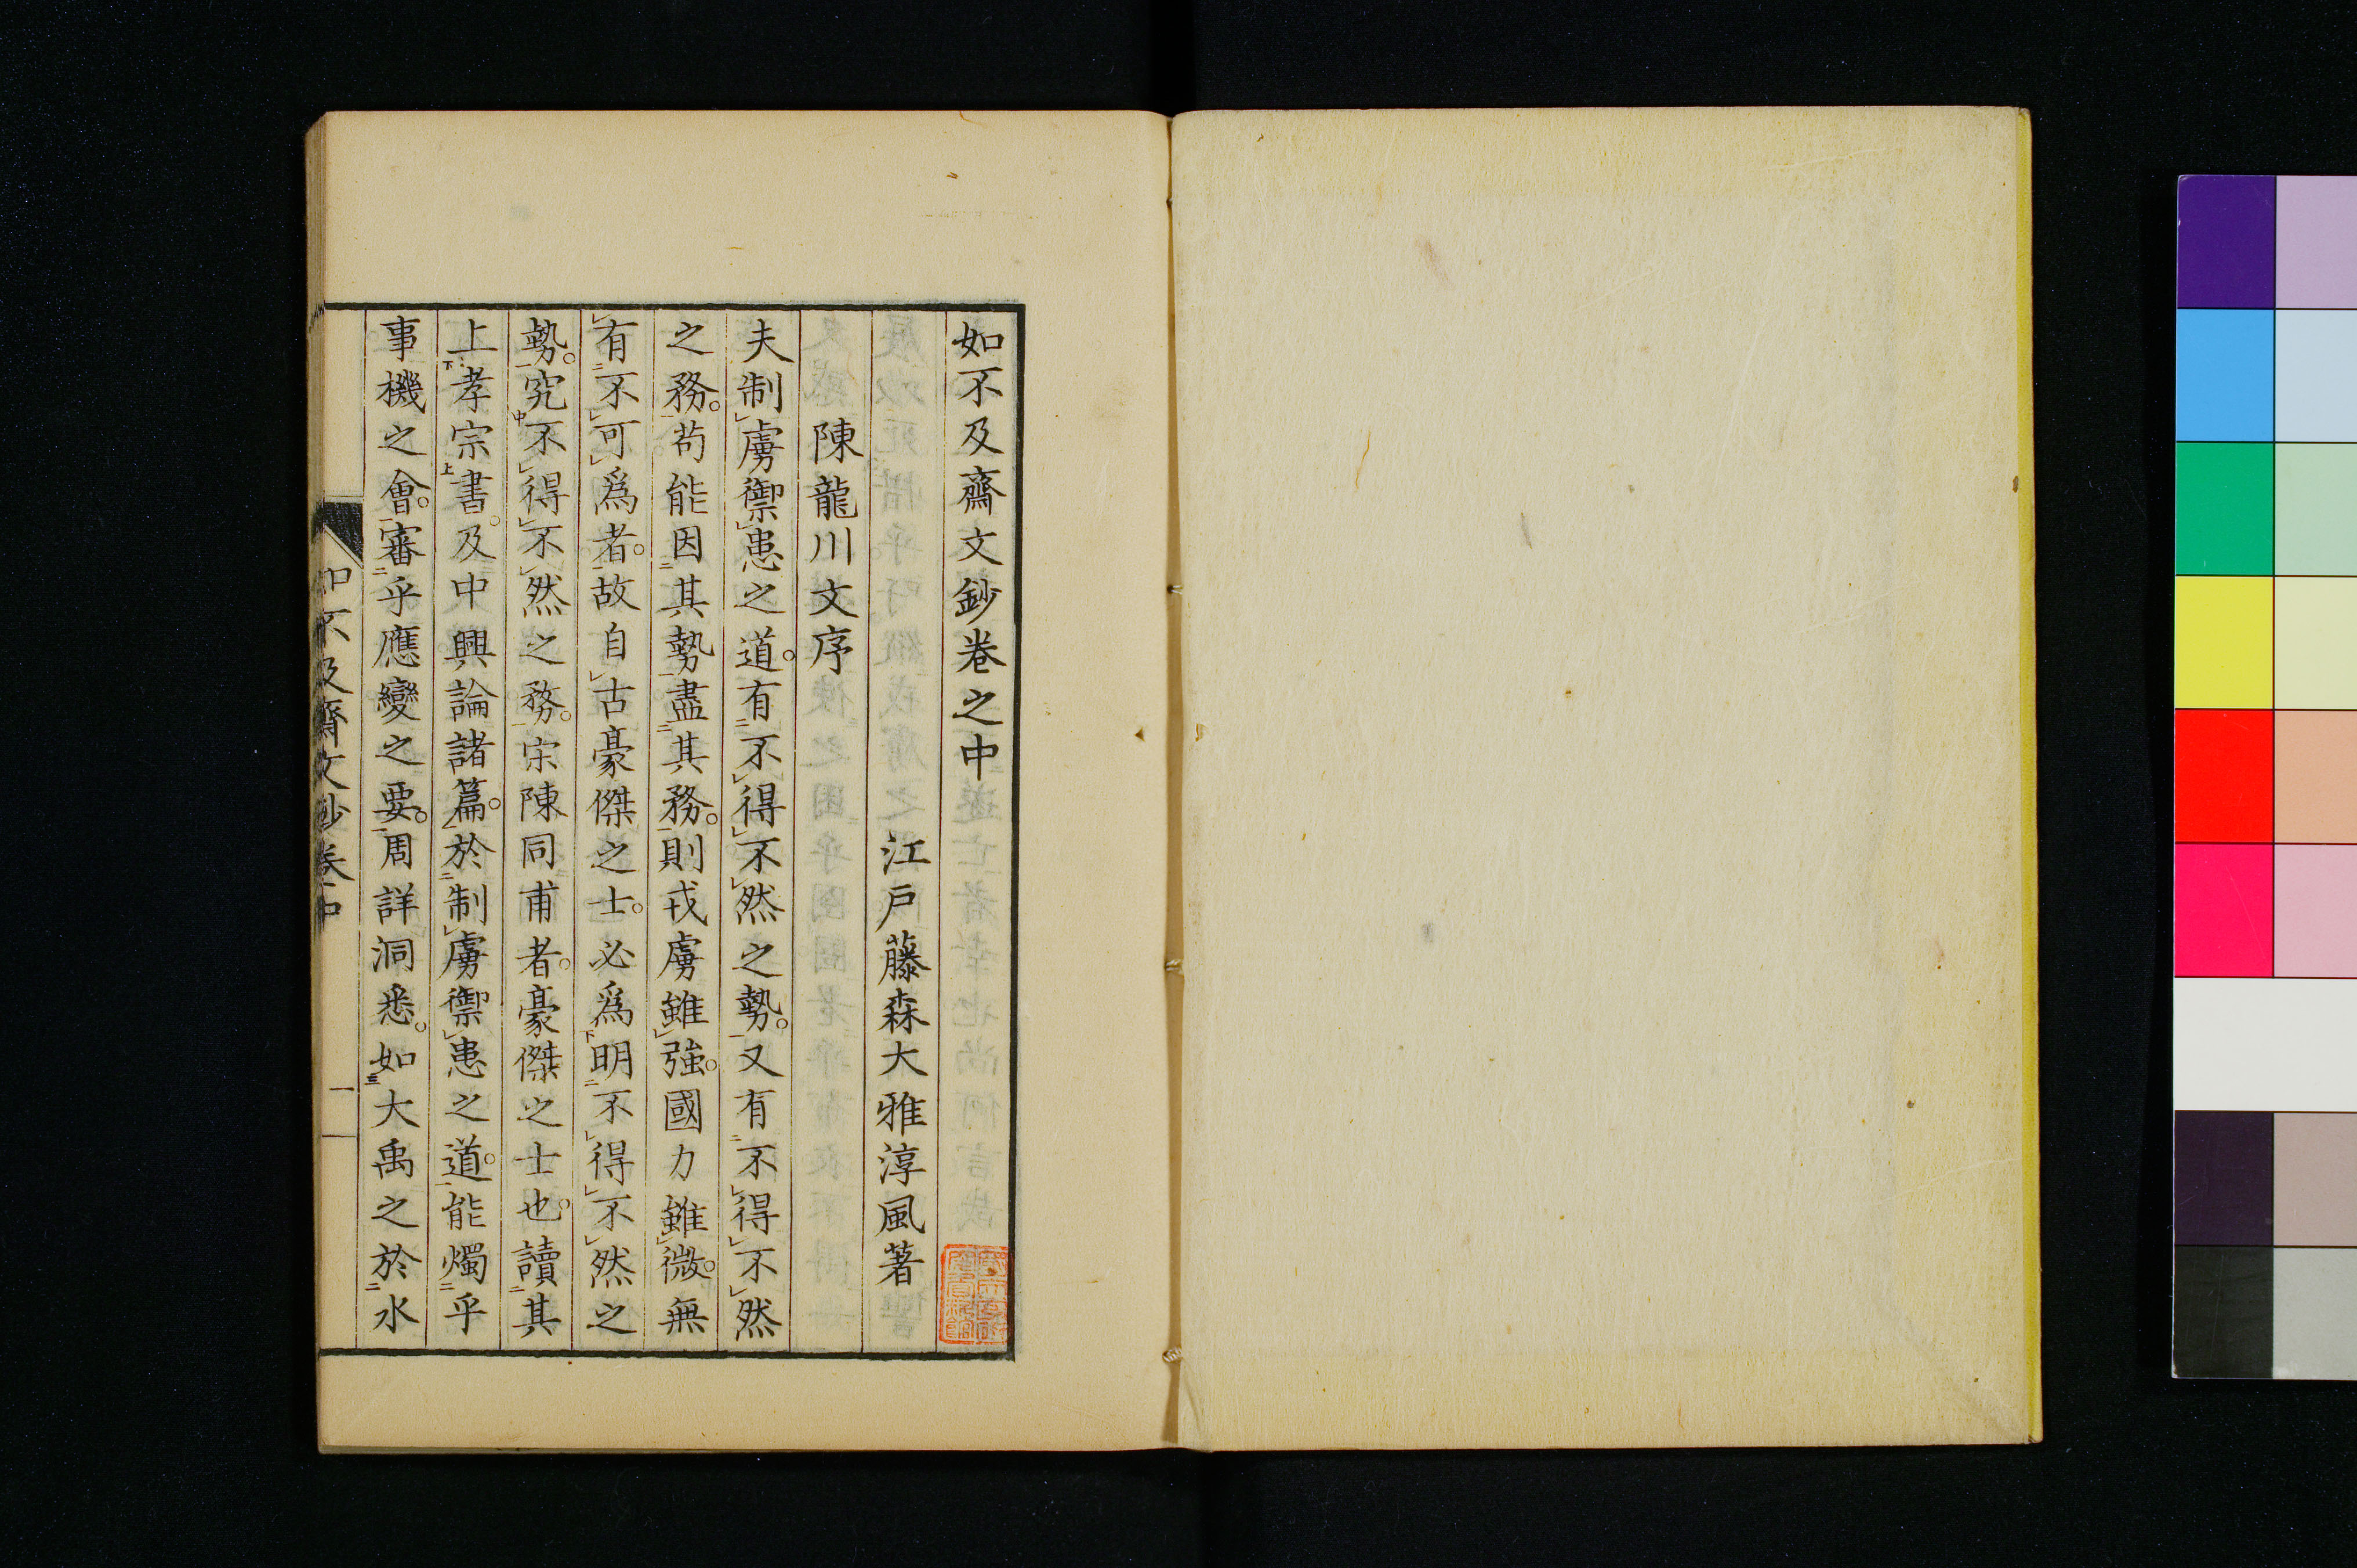 如不及齋文鈔卷之中
江戸藤森大雅淳風著
陳龍川文序
夫制虜禦患之道。有不得不然之勢。又有不得不然
之務。苟能因其勢盡其務。則戎虜雖強。國力雖微。無
有不可爲者。故自古豪傑之士。必爲明不得不然之
勢。究不得不然之務。宋陳同甫者。豪傑之士也。讀其
上孝宗書。及中興論諸篇。於制虜禦患之道。能燭乎
事機之會。審乎應變之要。周詳洞悉。如大禹之於水
如不及齋文鈔卷中
一